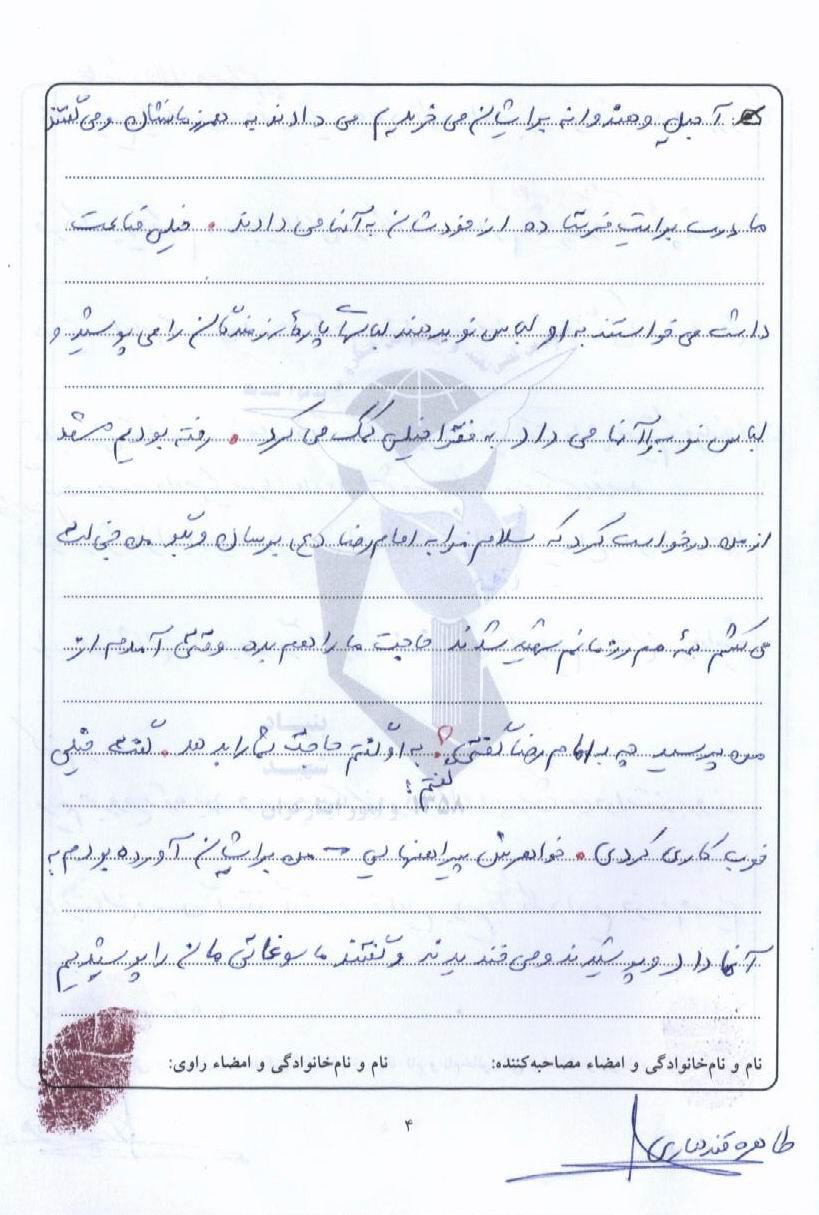 آجیل و هندوانه برایشان می خریدم می دادند به همرزمانشان و می گفتند
مادرت برایت فرستاده از خودشان به آنها می دادند . خیلی قناعت
داشت می خواستند به او لباس نو بدهند لباسهای پاره رزمندگان را می پوشید و
لباس نو به آنها می داد به فقرا خیلی کمک می کرد . رفته بودیم مشهد
از من درخواست کرد که سلام مرا به امام رضا (ع) برسان و بگو من خجالت
می کشم همه هم رزمانم شهید شدند حاجت ما را هم بده وقتی آمدم از
من پرسید چه به امام رضا گفتی؟ به او گفتم حاجت شما را بدهد . گفت خیلی
گفتم:
خوب کاری کردی . خواهرش پیراهنهایی من برایشان آورده بودم به
آنها داد و پوشیدند و می خندیدند و گفتند ما سوغاتی مان را پوشیدیم
بنیاد
شهید
نام و نام‌خانوادگی و امضاء مصاحبه‌کننده: نام و نام‌خانوادگی و امضاء راوی:
۴
طاهره قندهاری